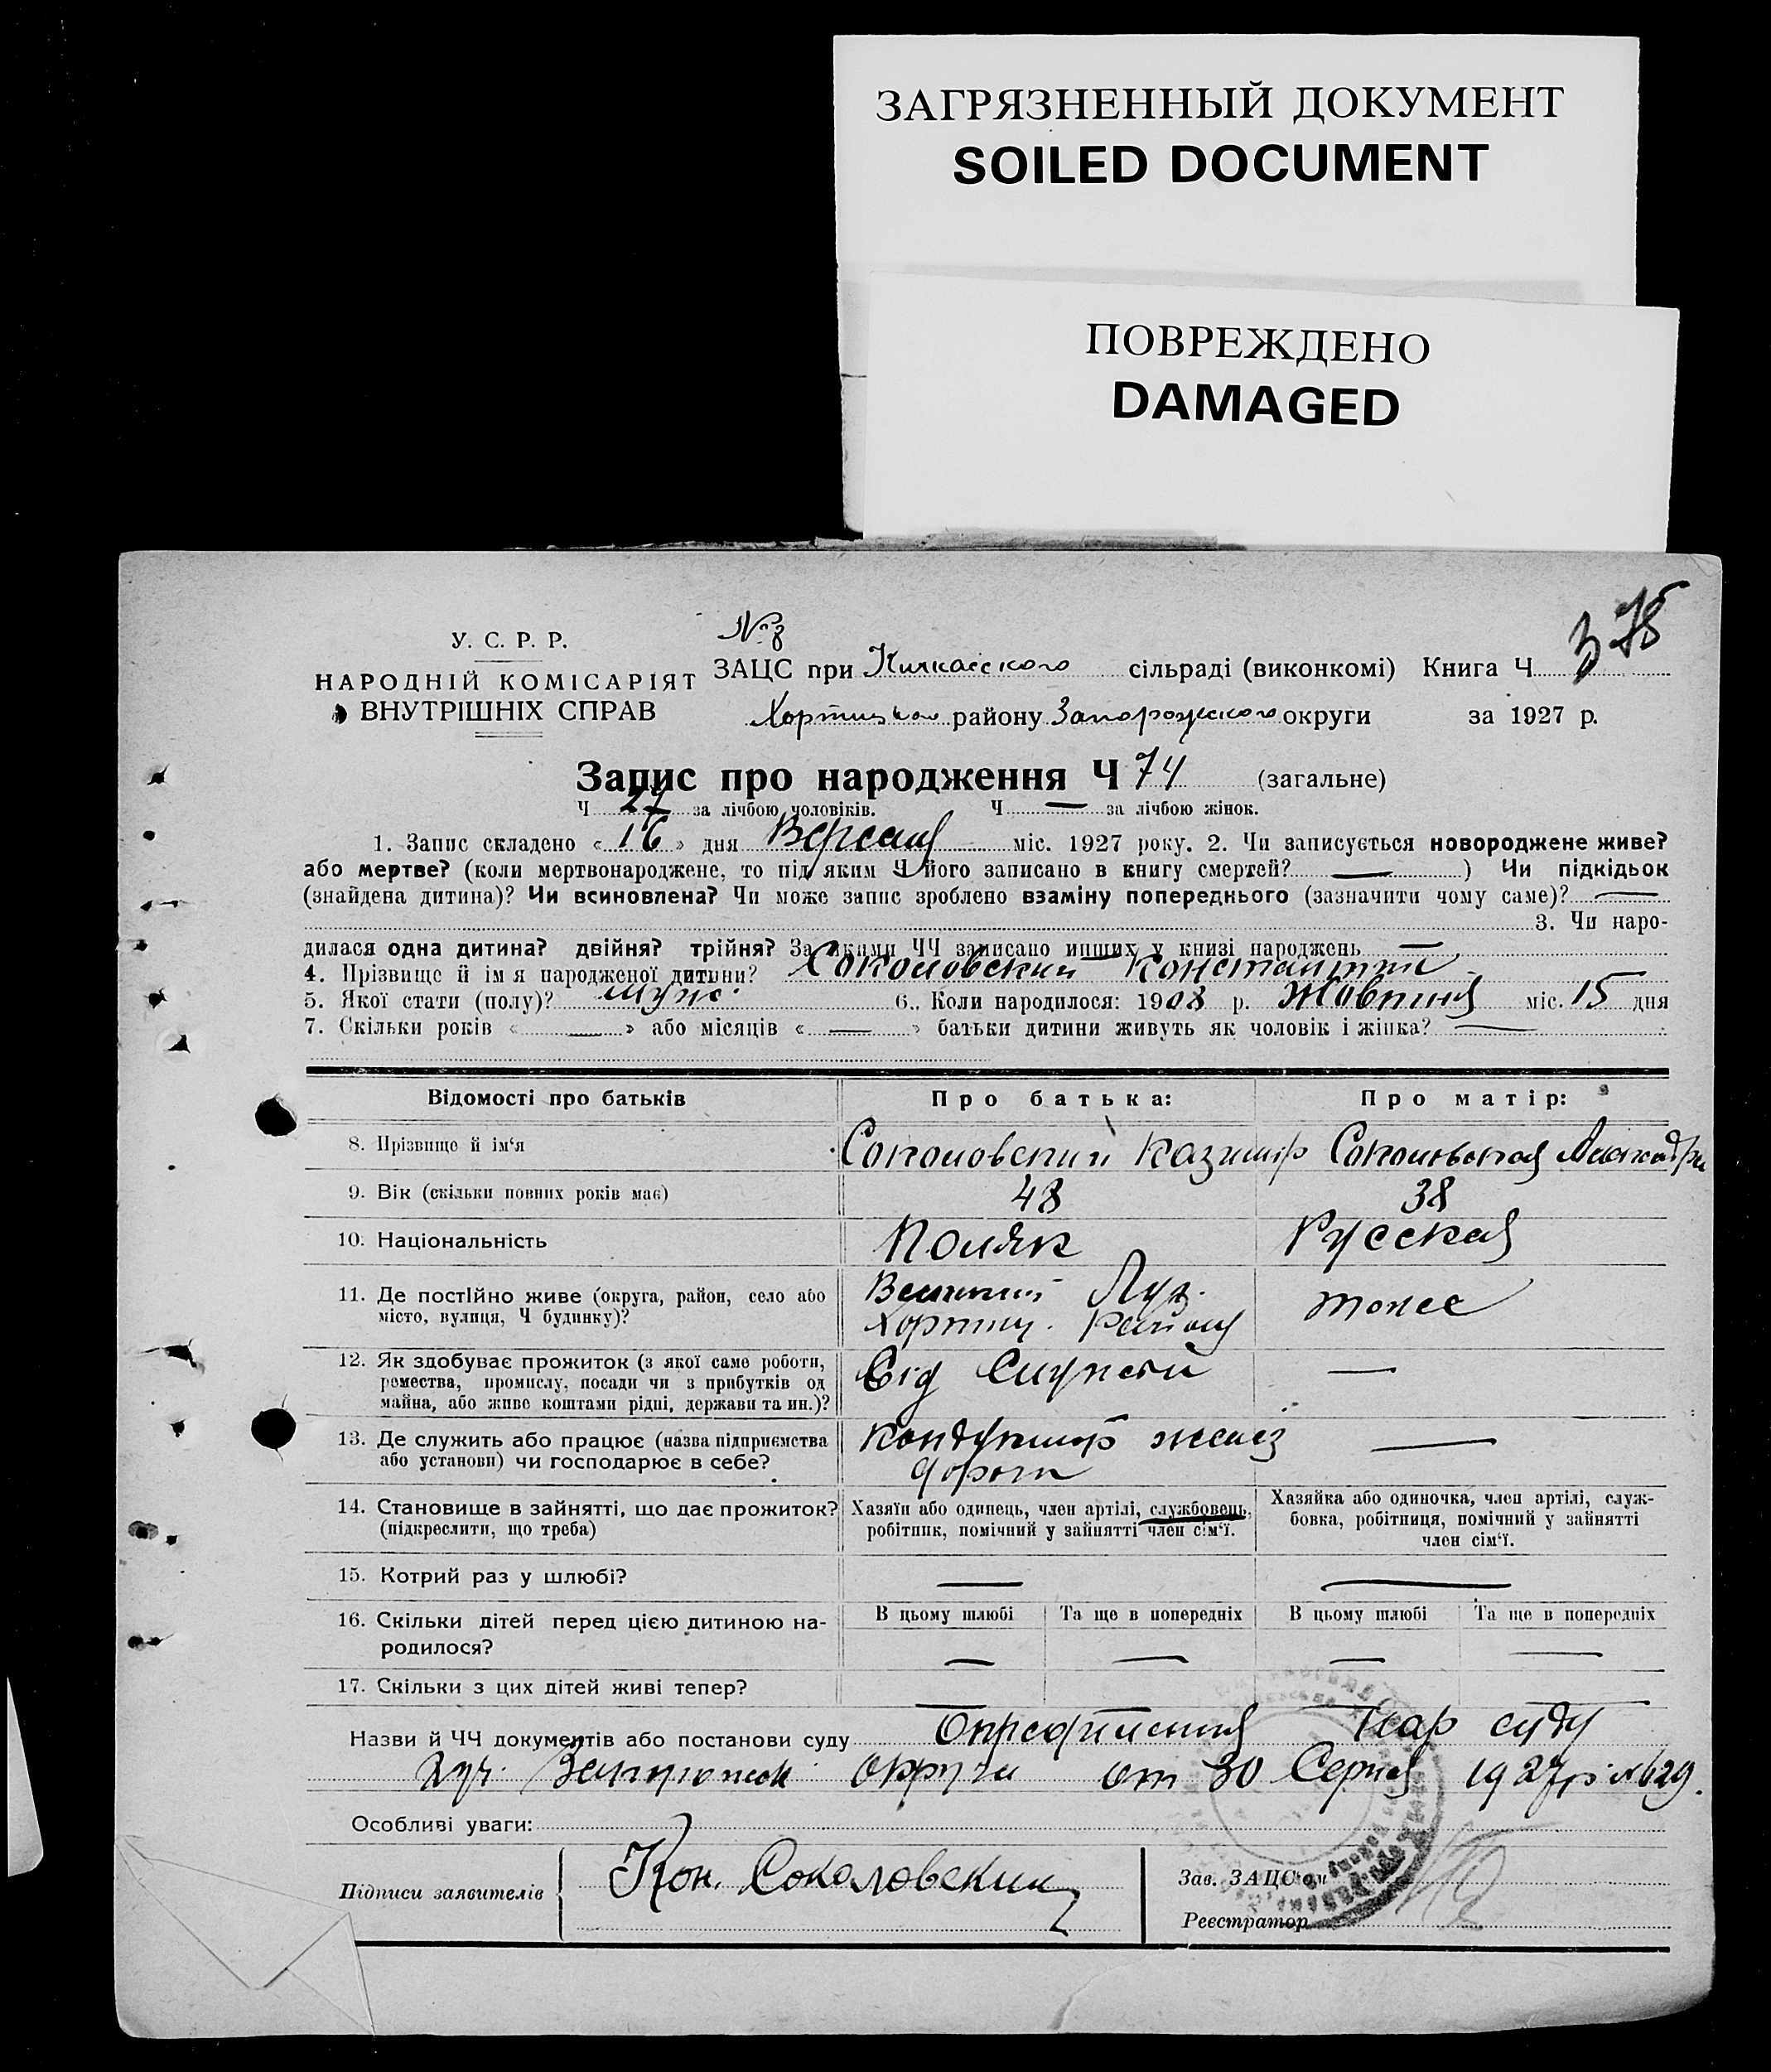 ЗАГРЯЗНЕННЫЙ ДОКУМЕНТ
SOILED DOCUMENT
ПОВРЕЖДЕНО
DAMAGED
378
У. С. Р. Р.
№ 8
НАРОДНІЙ КОМІСАРІЯТ
ВНУТРІШНІХ СПРАВ
ЗАЦС при Кичкасского сільраді (виконкомі) Книга Ч
Хортицкого району Запорожского округи за 1927 р.
Запис про народження Ч 74 (загальне)
Ч 27 за лічбою чоловіків. Ч — за лічбою жінок.
1. Запис складено « 16 » дня Вересня міс. 1927 року. 2. Чи записується новороджене живе?
або мертве? (коли мертвонароджене, то під яким Ч його записано в книгу смертей? — ) Чи підкідьок
(знайдена дитина)? Чи всиновлена? Чи може запис зроблено взаміну попереднього (зазначити чому саме)? —
3. Чи наро-
дилася одна дитина? двійня? трійня? За якими ЧЧ записано инших у книзі народжень —
4. Прізвище й ім я народженої дитини? Соколовский Константин
5. Якої стати (полу)? муж. 6. Коли народилося: 1908 р. Жовтня міс. 15 дня
7. Скільки років « — » або місяців « — » батьки дитини живуть як чоловік і жінка? —
Відомості про батьків Про батька: Про матір:
8. Прізвище й ім‘я Соколовский Казимир Соколовская Александра
9. Вік (скільки повних років має) 48 38
10. Національність Поляк Русская
11. Де постійно живе (округа, район, село або
місто, вулиця, Ч будинку)? Великий Луг.
Хортиц. Району тоже
12. Як здобуває прожиток (з якої саме роботи,
ремества, промислу, посади чи з прибутків од
майна, або живе коштами рідні, держави та ин.)? Від Служби —
13. Де служить або працює (назва підприємства
або установи) чи господарює в себе? Кондуктор желіз
дороги —
14. Становище в зайнятті, що дає прожиток?
(підкреслити, що треба)
Хазяїн або одинець, член артілі, службовець,
робітник, помічний у зайнятті член сім‘ї.
Хазяйка або одиночка, член артілі, служ-
бовка, робітниця, помічний у зайнятті
член сім‘ї.
15. Котрий раз у шлюбі? — —
16. Скільки дітей перед цією дитиною на-
родилося?
В цьому шлюбі Та ще в попередніх В цьому шлюбі Та ще в попередніх
— — — —
17. Скільки з цих дітей живі тепер? — —
Назви й ЧЧ документів або постанови суду Определення Нар суду
2 уч. Запорожск округи от 30 Серпня 1927 р. № 629.
Особливі уваги:
Підписи заявителів Кон. Соколовский
Зав. ЗАЦС‘ом
Реєстратор